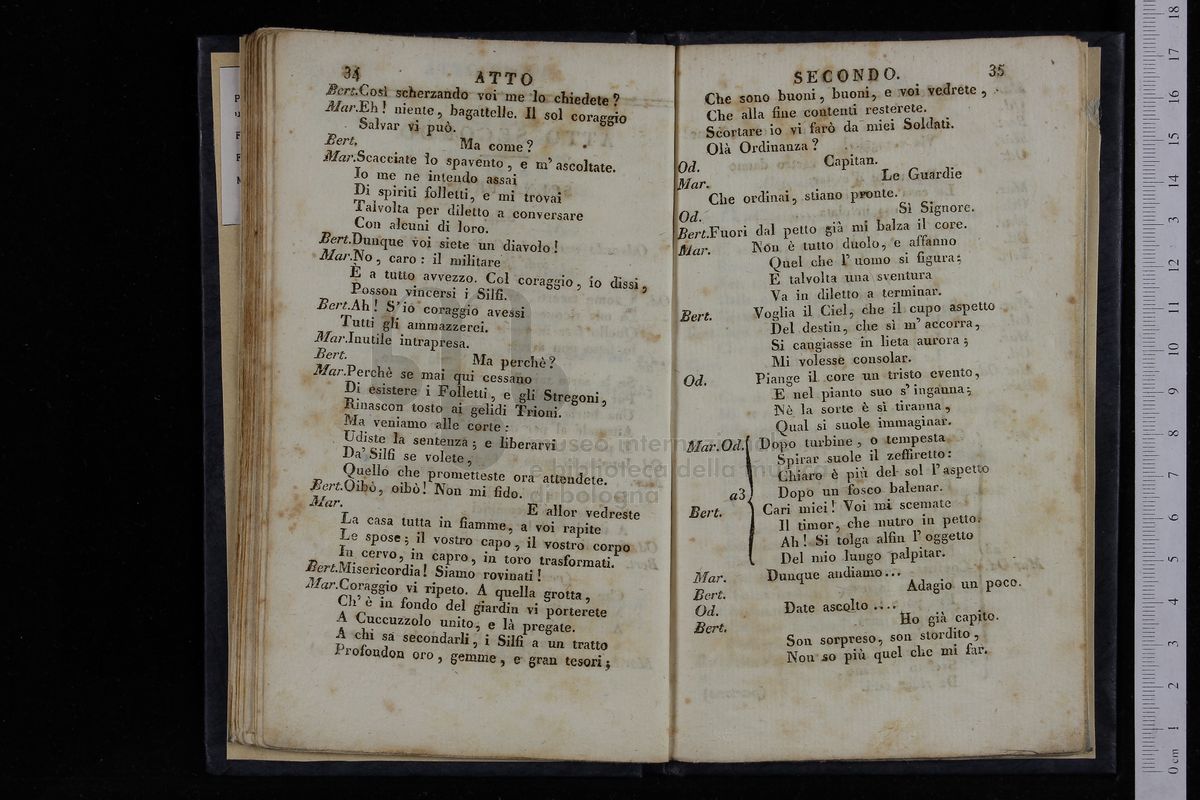 34
ATTO
Bert.Così scherzando voi me lo chiedete?
Mar.Eh! niente, bagattelle. Il sol coraggio
Salvar vi può.
Bert. Ma come?
Mar.Scacciate lo spavento, e m' ascoltate.
Io me ne intendo assai
Di spiriti folletti, e mi trovai
Talvolta per diletto a conversare
Con alcuni di loro.
Bert.Dunque voi siete un diavolo!
Mar.No, caro: il militare
È a tutto avvezzo. Col coraggio, io dissi,
Posson vincersi i Silfi.
Bert.Ah! S' io coraggio avessi
Tutti gli ammazzerei.
Mar.Inutile intrapresa.
Bert. Ma perchè?
Mar.Perchè se mai qui cessano
Di esistere i Folletti, e gli Stregoni,
Rinascon tosto ai gelidi Trioni.
Ma veniamo alle corte:
Udiste la sentenza; e liberarvi
Da' Silfi se volete,
Quello che prometteste ora attendete.
Bert.Oibò, oibò! Non mi fido.
Mar. E allor vedreste
La casa tutta in fiamme, a voi rapite
Le spose; il vostro capo, il vostro corpo
In cervo, in capro, in toro trasformati.
Bert.Misericordia! Siamo rovinati!
Mar.Coraggio vi ripeto. A quella grotta,
Ch' è in fondo del giardin vi porterete
A Cuccuzzolo unito, e là pregate.
A chi sa secondarli, i Silfi a un tratto
Profondon oro, gemme, e gran tesori;
SECONDO.
35
Che sono buoni, buoni, e voi vedrete,
Che alla fine contenti resterete.
Scortare io vi farò da miei Soldati.
Olà Ordinanza?
Od. Capitan.
Mar. Le Guardie
Che ordinai, stiano pronte.
Od. Sì Signore.
Bert.Fuori dal petto già mi balza il core.
Mar. Non è tutto duolo, e affanno
Quel che l' uomo si figura;
E talvolta una sventura
Va in diletto a terminar.
Bert. Voglia il Ciel, che il cupo aspetto
Del destin, che sì m' accorra,
Si cangiasse in lieta aurora;
Mi volesse consolar.
Od. Piange il core un tristo evento,
E nel pianto suo s' inganna;
Nè la sorte è sì tiranna,
Qual si suole immaginar.
Mar.Od. Dopo turbine, o tempesta
Spirar suole il zeffiretto:
Chiaro è più del sol l' aspetto
a3 Dopo un fosco balenar.
Bert. Cari miei! Voi mi scemate
Il timor, che nutro in petto.
Ah! Si tolga alfin l' oggetto
Del mio lungo palpitar.
Mar. Dunque andiamo...
Bert. Adagio un poco.
Od. Date ascolto ....
Bert. Ho già capito.
Son sorpreso, son stordito,
Non so più quel che mi far.
museo internaz
e biblioteca della musica
di bologna
0 cm 1 2 3 4 5 6 7 8 9 10 11 12 13 14 15 16 17 18